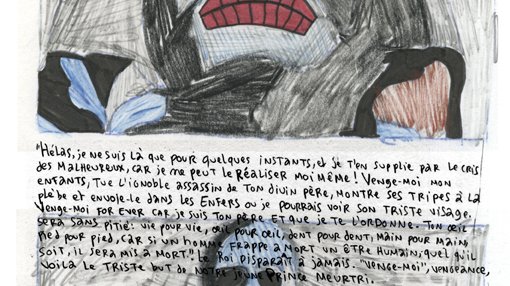 "Hélas, je ne suis là que pour quelques instants, et je t'en supplie par le cris
des malheureux, car je me peut le réaliser moi même ! Venge-moi mon
enfants, tue l'ignoble assassin de ton divin père, montre ses tripes à la
plèbe et envoie-le dans les Enfers ou je pourrais voir son triste visage.
Venge-moi for ever car je suis ton père et que je te l'ordonne. Ton œil
sera sans pitié : vie pour vie, œil pour œil, dent pour dent, main pour main,
pied pour pied, car si un homme frappe à mort un être humain, quel qu'il
soit, il sera mis à mort." Le Roi disparaît à jamais. "Venge-moi", vengeance,
voilà le triste but de notre jeune Prince meurtri.